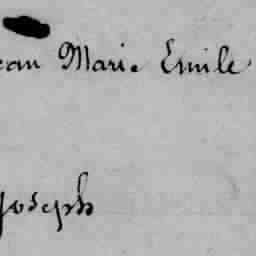 ean Marie Emile
Joseph